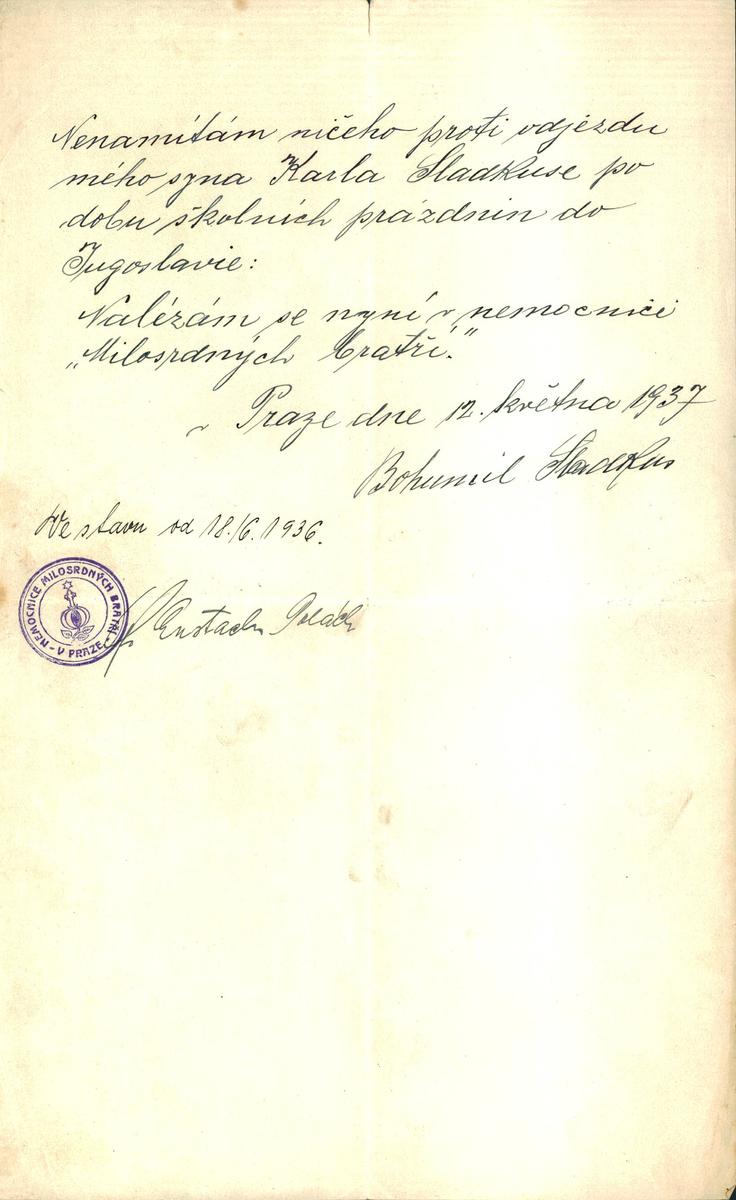 Nenamítám ničeho proti odjezdu
mého syna Karla Sladkuse po
dobu školních prázdnin do
Jugoslavie:
Nalézám se nyní v nemocnici
„Milosrdných bratří."
v Praze dne 12. května 1937
Bohumil Sladkus
Ve stavu od 18./6. 1936.
NEMOCNICE MILOSRDNÝCH BRATŘÍ
- V PRAZE -
Eustach Polách